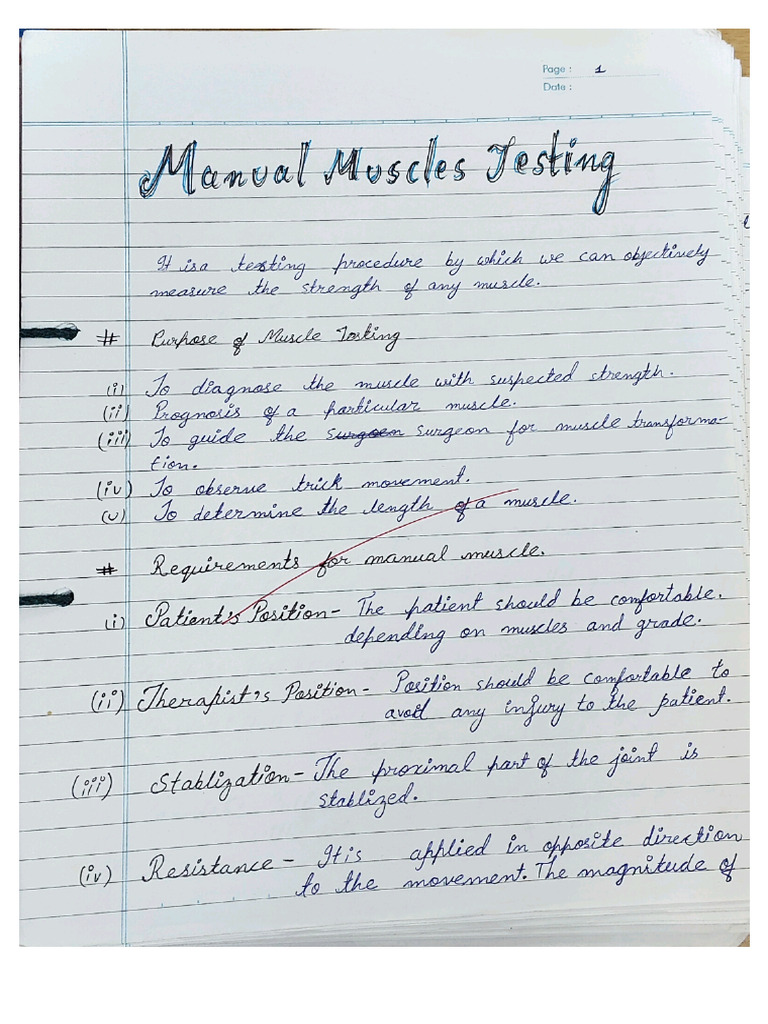 Page : 1
Date :
Manual Muscles Testing
It is a testing procedure by which we can objectively
measure the strength of any muscle.
# Purpose of Muscle Testing
(i) To diagnose the muscle with suspected strength.
(ii) Prognosis of a particular muscle.
(iii) To guide the surgeon for muscle transforma-
tion.
(iv) To observe trick movement.
(v) To determine the length of a muscle.
# Requirements for manual muscle.
(i) Patient's Position - The patient should be comfortable.
depending on muscles and grade.
(ii) Therapist's Position - Position should be comfortable to
avoid any injury to the patient.
(iii) Stablization - The proximal part of the joint is
stablized.
(iv) Resistance - It is applied in opposite direction
to the movement. The magnitude of